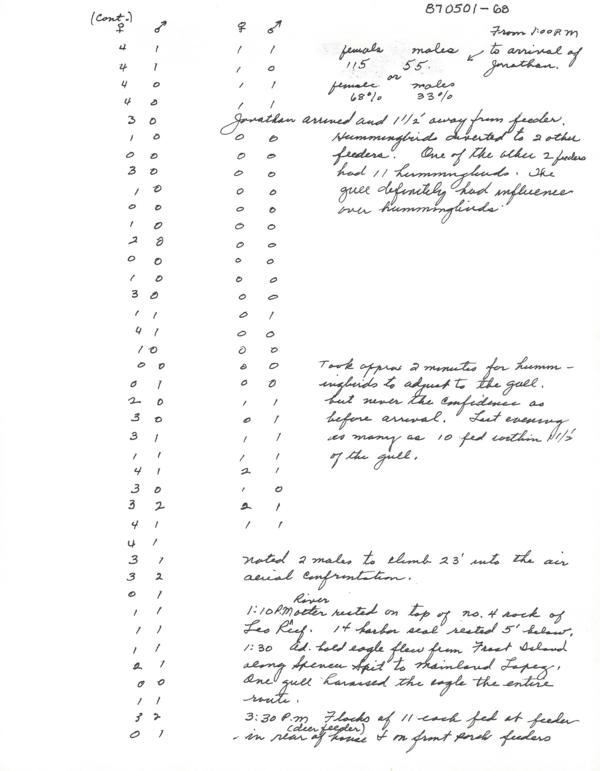 870501-68
(Cont.)
♀ ♂ ♀ ♂ From 1:00 P.M
4 1 1 1 female males to arrival of
4 1 1 0 115 55. Jonathan.
or
4 0 1 1 female males
4 0 1 1 68% 33%
3 0 Jonathan arrived and 1 1/2' away from feeder.
1 0 0 0 Hummingbirds diverted to 2 other
0 0 0 0 feeders. One of the other 2 feeders
3 0 0 0 had 11 hummingbirds. The
1 0 0 0 gull definitely had influence
0 0 0 0 over hummingbirds.
1 0 0 0
2 0 0 0
0 0 0 0
1 0 0 0
3 0 0 0
1 1 0 1
4 1 0 0
1 0 0 0
0 0 0 0 Took approx 2 minutes for humm-
0 1 0 0 ingbirds to adjust to the gull.
2 0 1 1 but never the confidence as
3 0 0 1 before arrival. Last evening
3 1 1 1 as many as 10 fed within 1 1/2'
1 1 1 1 of the gull.
4 1 2 1
3 0 1 0
3 2 2 1
4 1 1 1
4 1
3 1 noted 2 males to climb 23' into the air
3 2 aerial confrontation.
0 1 River
1 1 1:10 P.M otter rested on top of no. 4 rock of
1 1 Leo Reef. 1+ harbor seal rested 5' below.
1 1 1:30 Ad. bald eagle flew from Frost Island
2 1 along Spencer Spit to mainland Lopez.
0 0 One gull harassed the eagle the entire
1 1 route.
3 2 3:30 P.m Flocks of 11 each fed at feeder
(deer feeder)
0 1 - in rear of house & on front porch feeders